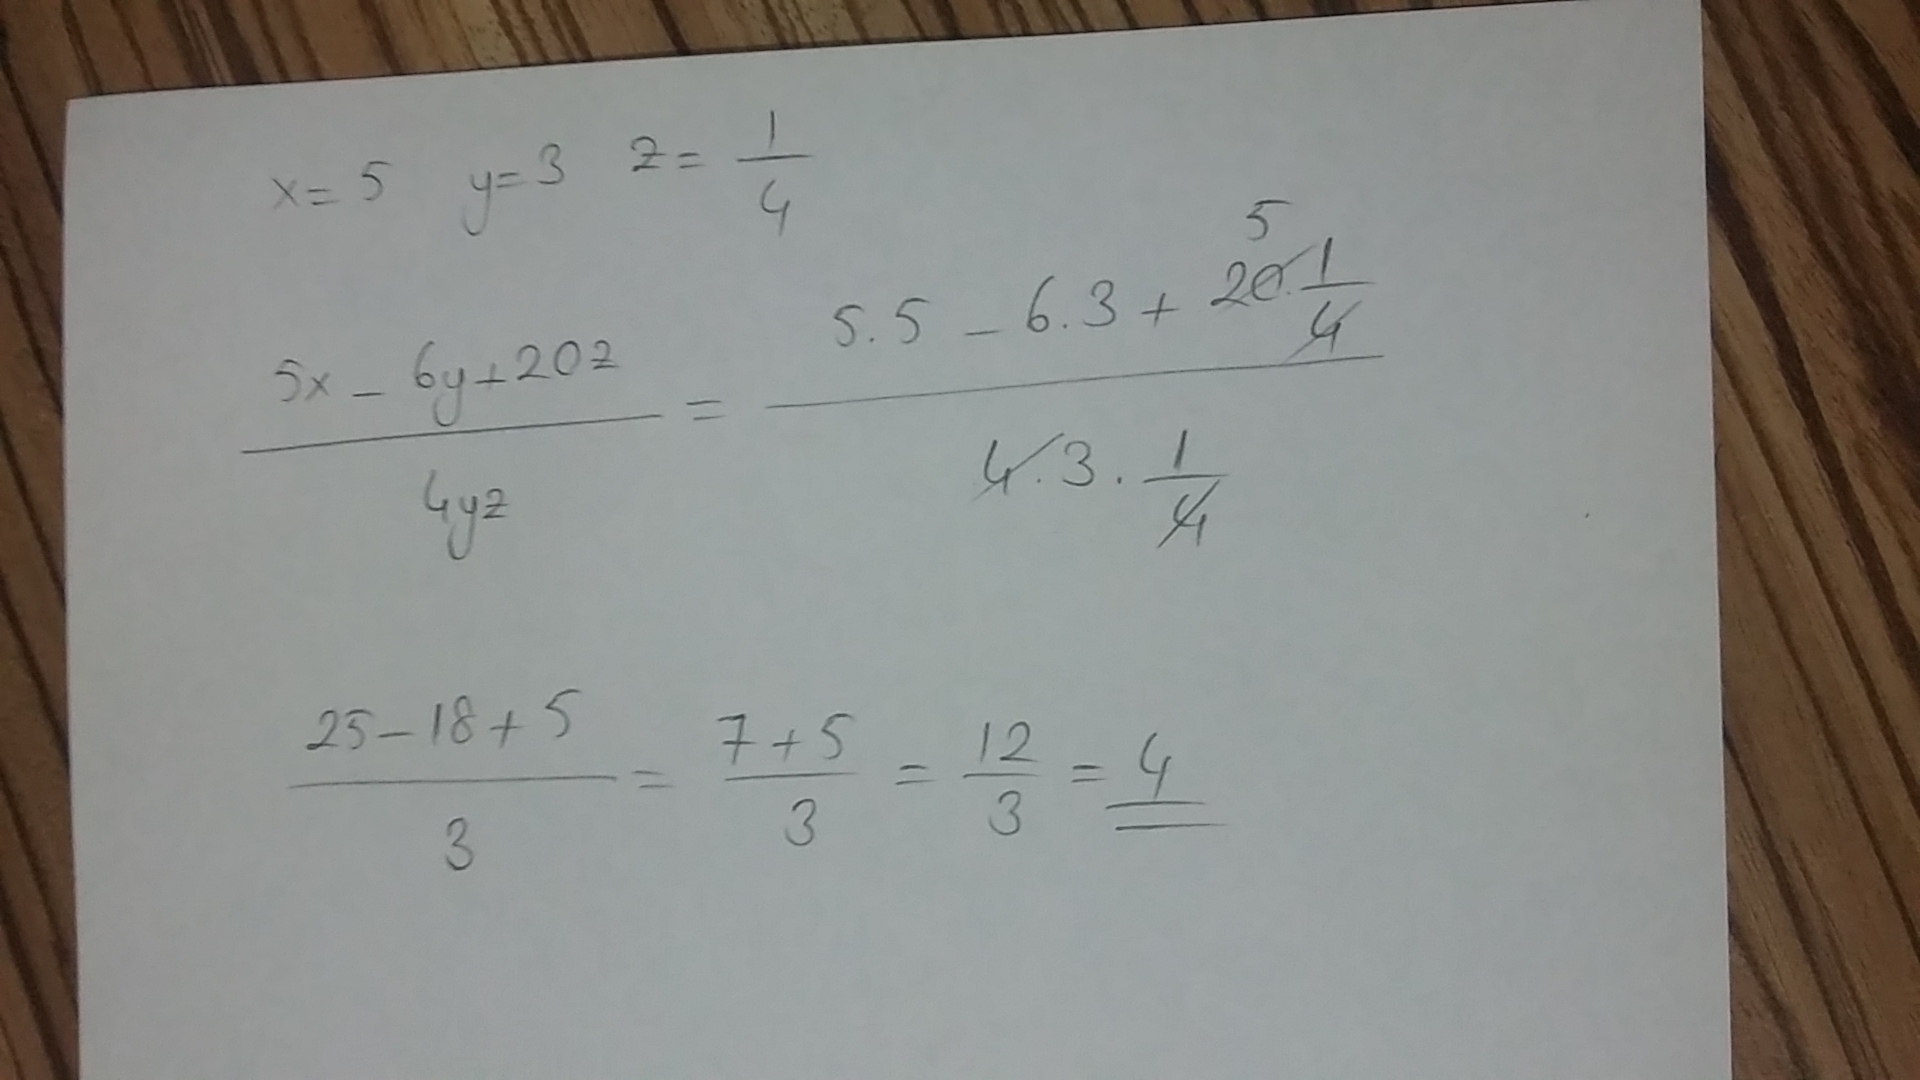 x = 5 y = 3 z = 1/4
(5x - 6y + 20z) / 4yz = (5.5 - 6.3 + 20.1/4) / (4.3.1/4)
5
(25 - 18 + 5) / 3 = (7 + 5) / 3 = 12/3 = 4